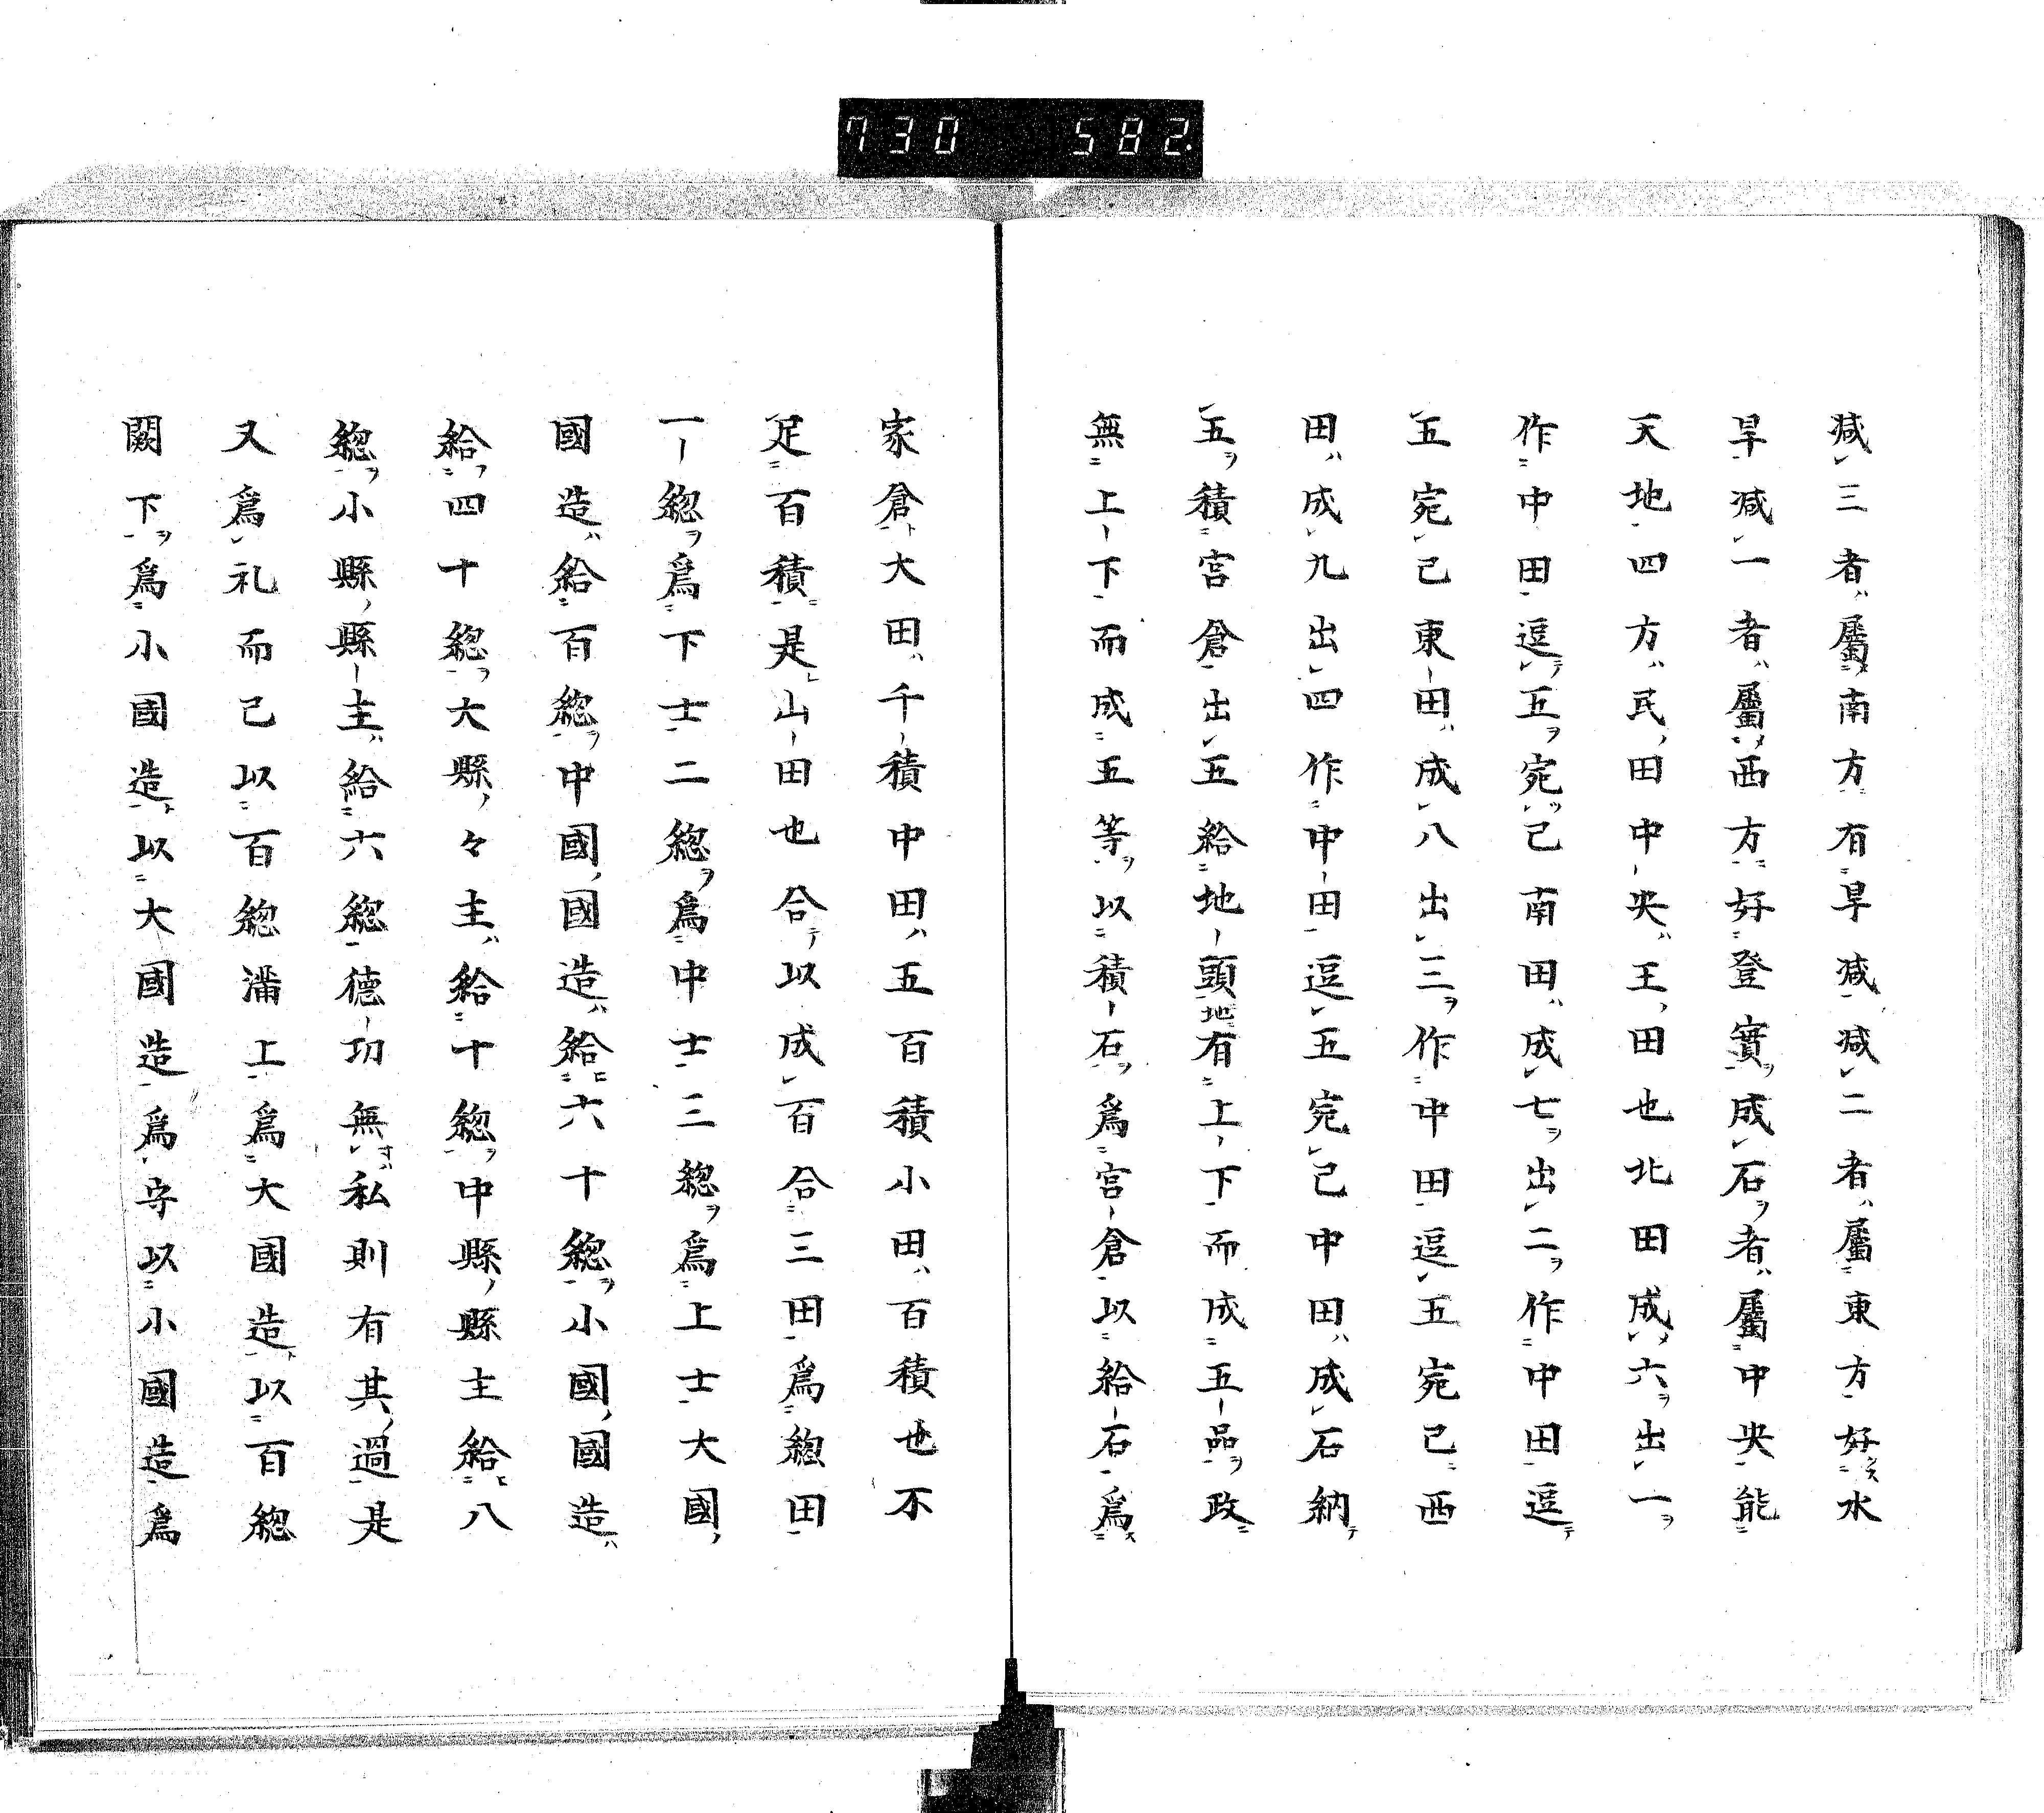 730 582.
減三者屬南方有旱減減二者屬東方好水
旱減一者屬西方好登實成石者屬中央能
天地四方民田中央王田也北田成六出一
作中田逗五宛己南田成七出二作中田逗
五宛己東田成八出三作中田逗五宛己西
田成九出四作中田逗五宛己中田成石納
五積宮倉出五給地頭地有上下而成五品政
無上下而成五等以積石爲宮倉以給石爲
家倉大田千積中田五百積小田百積也不
足百積是山田也合以成百合三田爲緫田
一緫爲下士二緫爲中士三緫爲上士大國
國造給百緫中國國造給六十緫小國國造
給四十緫大縣々主給十緫中縣縣主給八
緫小縣縣主給六緫德功無私則有其過是
又爲礼而已以百緫滿上爲大國造以百緫
闕下爲小國造以大國造爲守以小國造爲